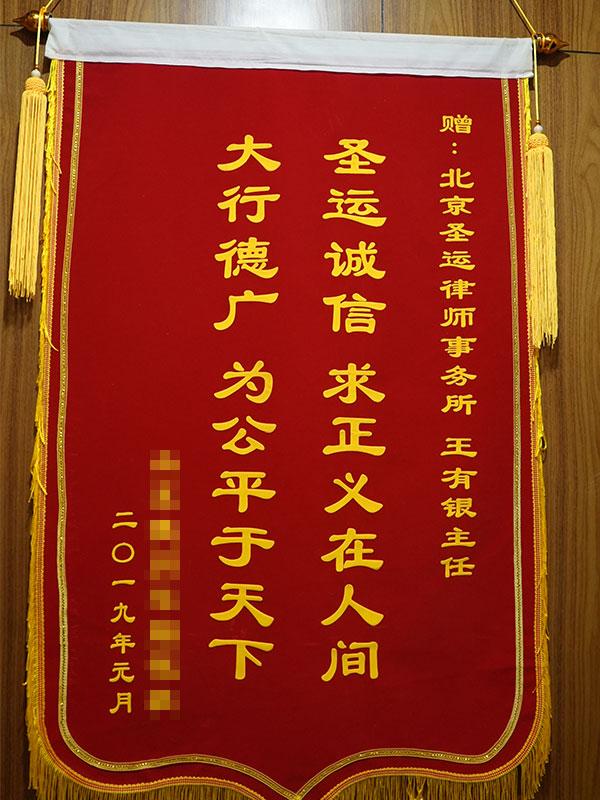 赠：北京圣运律师事务所 王有银主任
圣运诚信 求正义在人间
大行德广 为公平于天下
二〇一九年元月